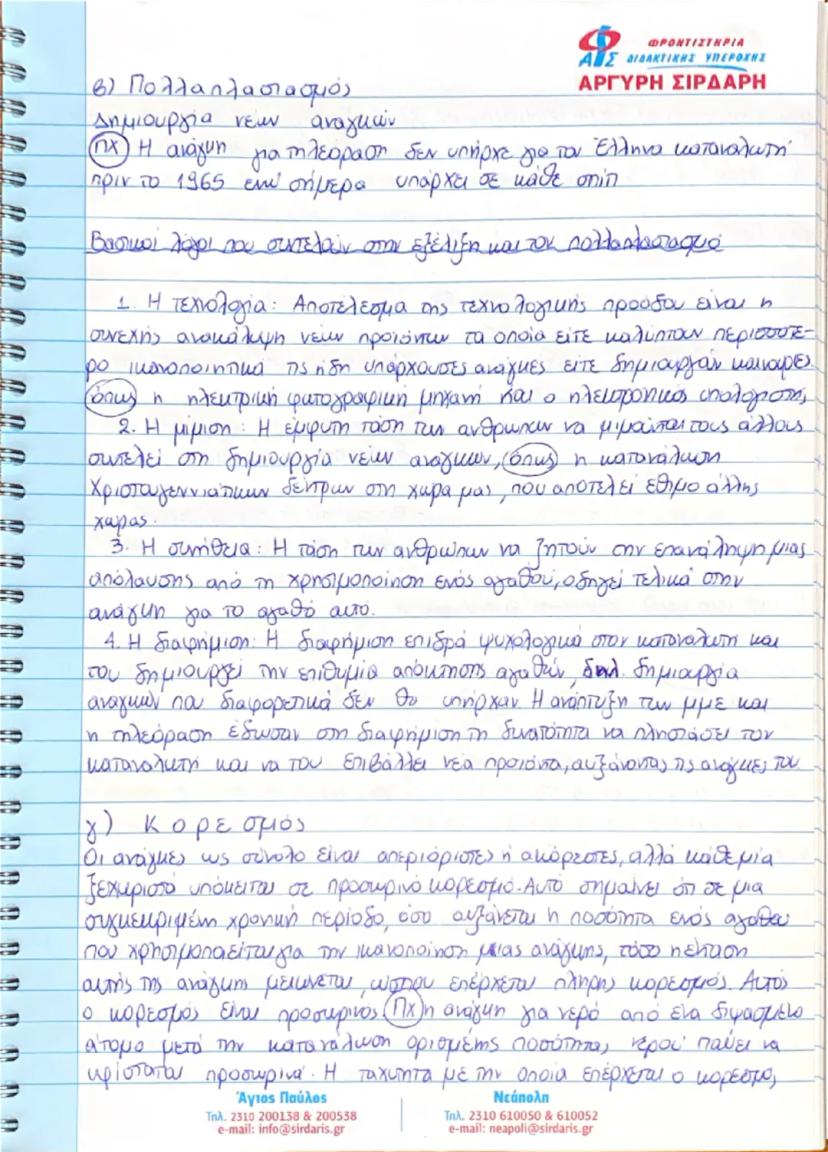 ΦΡΟΝΤΙΣΤΗΡΙΑ
ΔΙΔΑΚΤΙΚΗΣ ΥΠΕΡΟΧΗΣ
ΑΡΓΥΡΗ ΣΙΡΔΑΡΗ
β) Πολλαπλασιασμός
Δημιουργία νέων αναγκών
πχ Η ανάγκη για τηλεόραση δεν υπήρχε για τον Έλληνα καταναλωτή
πριν το 1965 ενώ σήμερα υπάρχει σε κάθε σπίτι
Βασικοί λόγοι που συντελούν στην εξέλιξη και τον πολλαπλασιασμό
1. Η τεχνολογία: Αποτέλεσμα της τεχνολογικής προόδου είναι η
συνεχής ανακάλυψη νέων προϊόντων τα οποία είτε καλύπτουν περισσότε-
ρο ικανοποιητικά τις ήδη υπάρχουσες ανάγκες είτε δημιουργούν καινούριες
όπως η ηλεκτρική φωτογραφική μηχανή και ο ηλεκτρονικός υπολογιστής
2. Η μίμιση: Η έμφυτη τάση των ανθρώπων να μιμούνται τους άλλους
συντελεί στη δημιουργία νέων αναγκών, όπως η κατανάλωση
Χριστουγεννιάτικων δέντρων στη χώρα μας, που αποτελεί έθιμο άλλης
χώρας.
3. Η συνήθεια: Η τάση των ανθρώπων να ζητούν την επανάληψη μιας
απόλαυσης από τη χρησιμοποίηση ενός αγαθού, οδηγεί τελικά στην
ανάγκη για το αγαθό αυτό.
4. Η διαφήμιση: Η διαφήμιση επιδρά ψυχολογικά στον καταναλωτή και
του δημιουργεί την επιθυμία απόκτησης αγαθών, δηλ. δημιουργία
αναγκών που διαφορετικά δεν θα υπήρχαν. Η ανάπτυξη των μμε και
η τηλεόραση έδωσαν στη διαφήμιση τη δυνατότητα να πλησιάσει τον
καταναλωτή και να του επιβάλλει νέα προϊόντα, αυξάνοντας τις ανάγκες του
γ) Κορεσμός
Οι ανάγκες ως σύνολο είναι απεριόριστες ή ακόρεστες, αλλά κάθε μία
ξεχωριστά υπόκειται σε προσωρινό κορεσμό. Αυτό σημαίνει ότι σε μια
συγκεκριμένη χρονική περίοδο, όσο αυξάνεται η ποσότητα ενός αγαθού
που χρησιμοποιείται για την ικανοποίηση μιας ανάγκης, τόσο η ένταση
αυτής της ανάγκη μειώνεται, ώσπου επέρχεται πλήρης κορεσμός. Αυτός
ο κορεσμός είναι προσωρινός πχ η ανάγκη για νερό από ένα διψασμένο
άτομο μετά την κατανάλωση ορισμένης ποσότητας νερού παύει να
υφίσταται προσωρινά. Η ταχύτητα με την οποία επέρχεται ο κορεσμός,
Άγιος Παύλος
Τηλ. 2310 200138 & 200538
e-mail: info@sirdaris.gr
Νεάπολη
Τηλ. 2310 610050 & 610052
e-mail: neapoli@sirdaris.gr